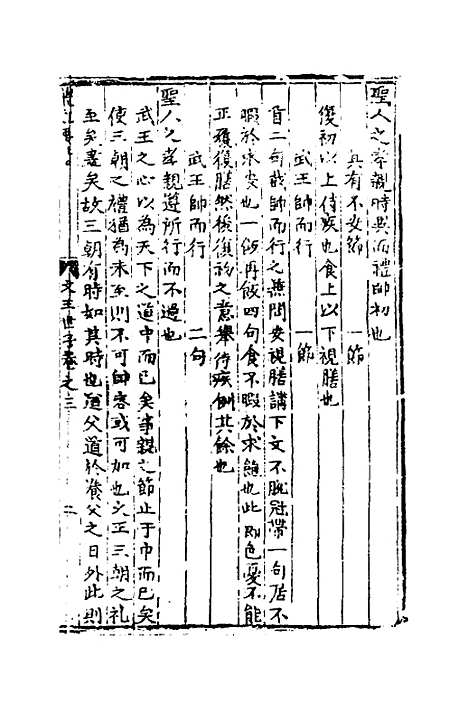 聖人之孝親時異而禮師初也
其有不安節 一節
復初以上侍疾也食上以下視膳也
武王帥而行 一節
首二句我帥而行之兼問安視膳講下文不脫冠帶一句居不
暇於求安也一飯再飯四句食不暇於求飽也此即色憂不能
正履復膳然後復初之意舉侍疾例其餘也
武王帥而行 二句
聖人之孝親遵所行而不過也
武王之心以為天下之道中而已矣事親之節止于中而已矣
使三朝之禮猶為未至則不可帥容或可加也文王三朝之礼
至矣盡矣故三朝有時如其時也道父道於養父之日外此則
文王世子卷之三 二